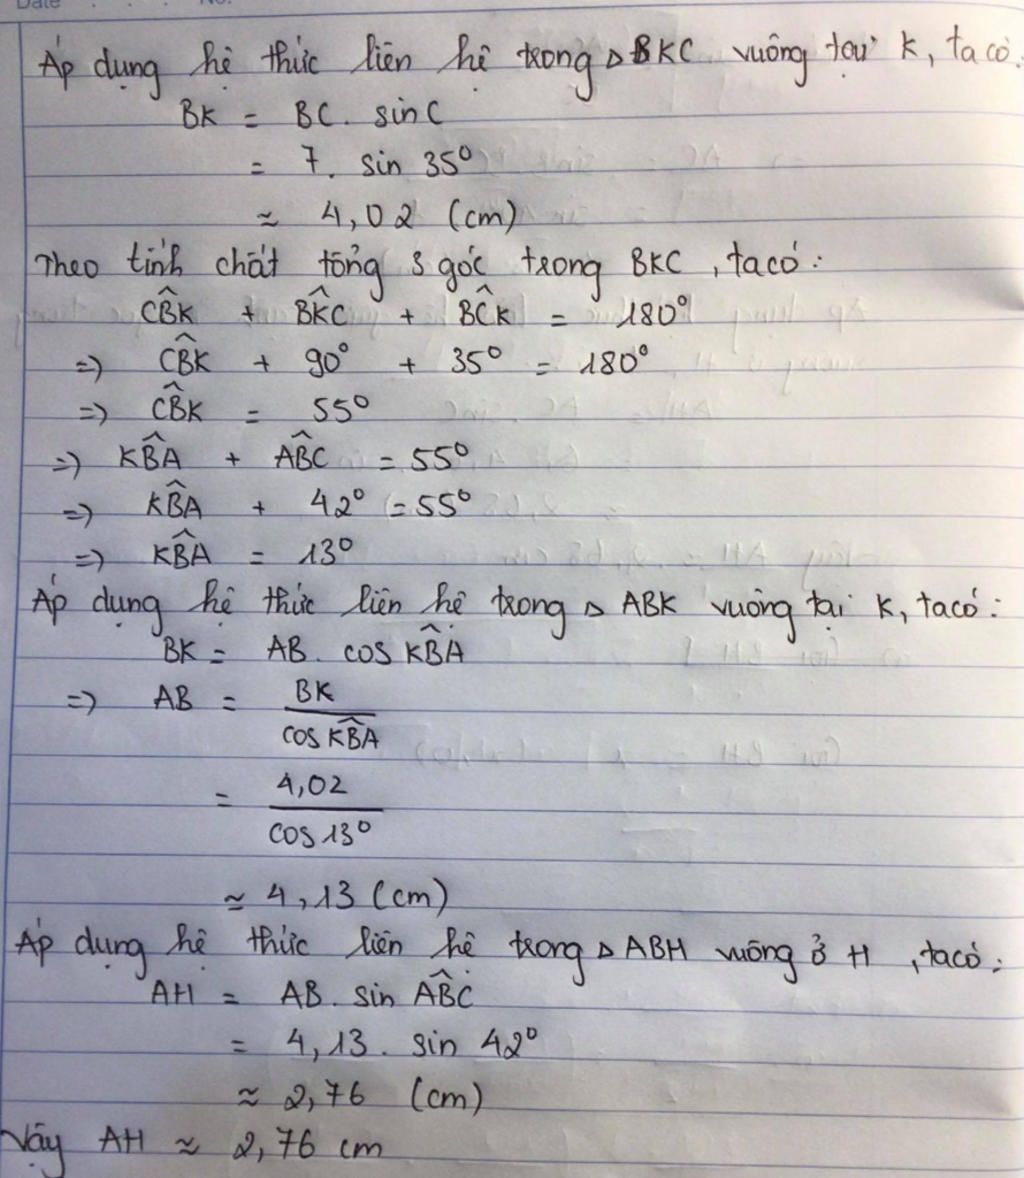 Date . . . No.
Áp dụng hệ thức liên hệ trong △BKC vuông tại K, ta có:
BK = BC. sin C
= 7. sin 35°
≈ 4,02 (cm)
Theo tính chất tổng 3 góc trong BKC, ta có:
CB̂K + BK̂C + BĈK = 180°
=> CB̂K + 90° + 35° = 180°
=> CB̂K = 55°
=> KB̂A + AB̂C = 55°
=> KB̂A + 42° = 55°
=> KB̂A = 13°
Áp dụng hệ thức liên hệ trong △ ABK vuông tại K, ta có:
BK = AB. cos KB̂A
=> AB = BK / cos KB̂A
= 4,02 / cos 13°
≃ 4,13 (cm)
Áp dụng hệ thức liên hệ trong △ ABH vuông ở H, ta có:
AH = AB. sin AB̂C
= 4,13. sin 42°
≈ 2,76 (cm)
Vậy AH ≈ 2,76 cm